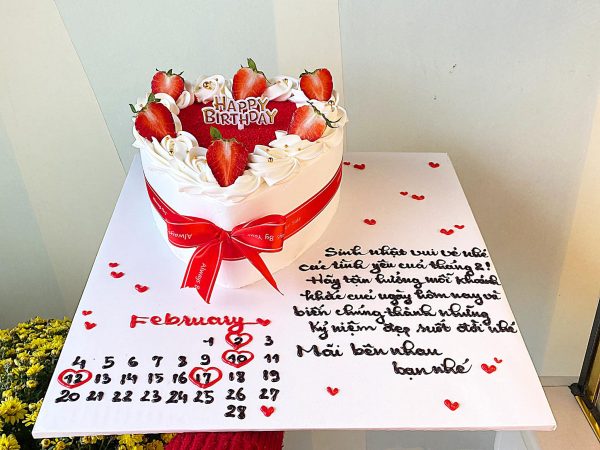 HAPPY
BIRTHDAY
Always By Your
Always
Sinh nhật vui vẻ nhé
các tình yêu của tháng 2!
Hãy tận hưởng mỗi khoảnh
khắc của ngày hôm nay và
biến chúng thành những
kỷ niệm đẹp suốt đời nhé
Mãi bên nhau
bạn nhé
February
1 2 3
4 5 6 7 8 9 10 11
12 13 14 15 16 17 18 19
20 21 22 23 24 25 26 27
28